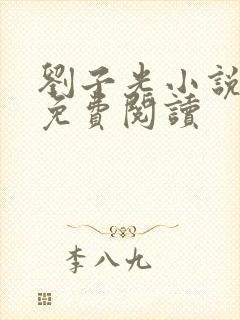 劉子光小說
免費閱讀
李八九